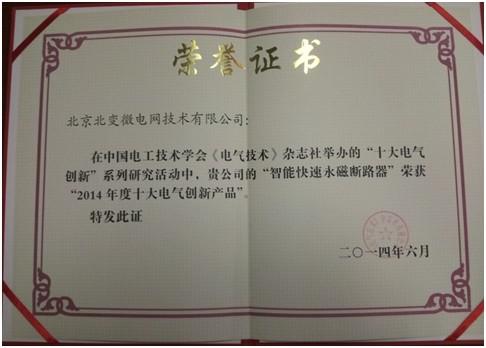 荣誉证书
北京北变微电网技术有限公司：
在中国电工技术学会《电气技术》杂志社举办的“十大电气
创新”系列研究活动中，贵公司的“智能快速永磁断路器”荣获
“2014年度十大电气创新产品”。
特发此证
二〇一四年六月